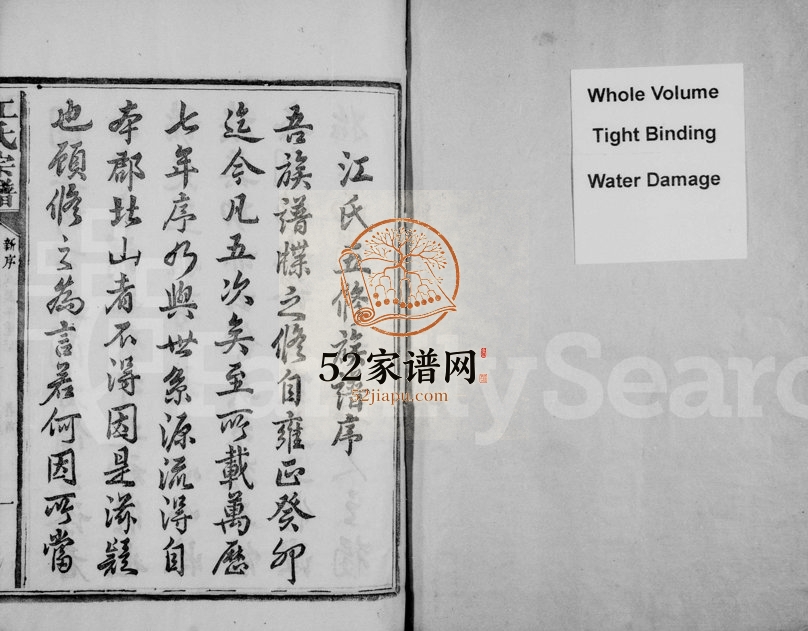 江氏五修族譜序
吾族譜牒之修自雍正癸卯
迄今凡五次矣至所載萬歷
七年序乃與世系源流得自
本郡北山者不得因是滋疑
也顧修之為言若何因所當
江氏宗譜
新序
一
Whole Volume
Tight Binding
Water Damage
52家谱网
52jiapu.com
FamilySearc